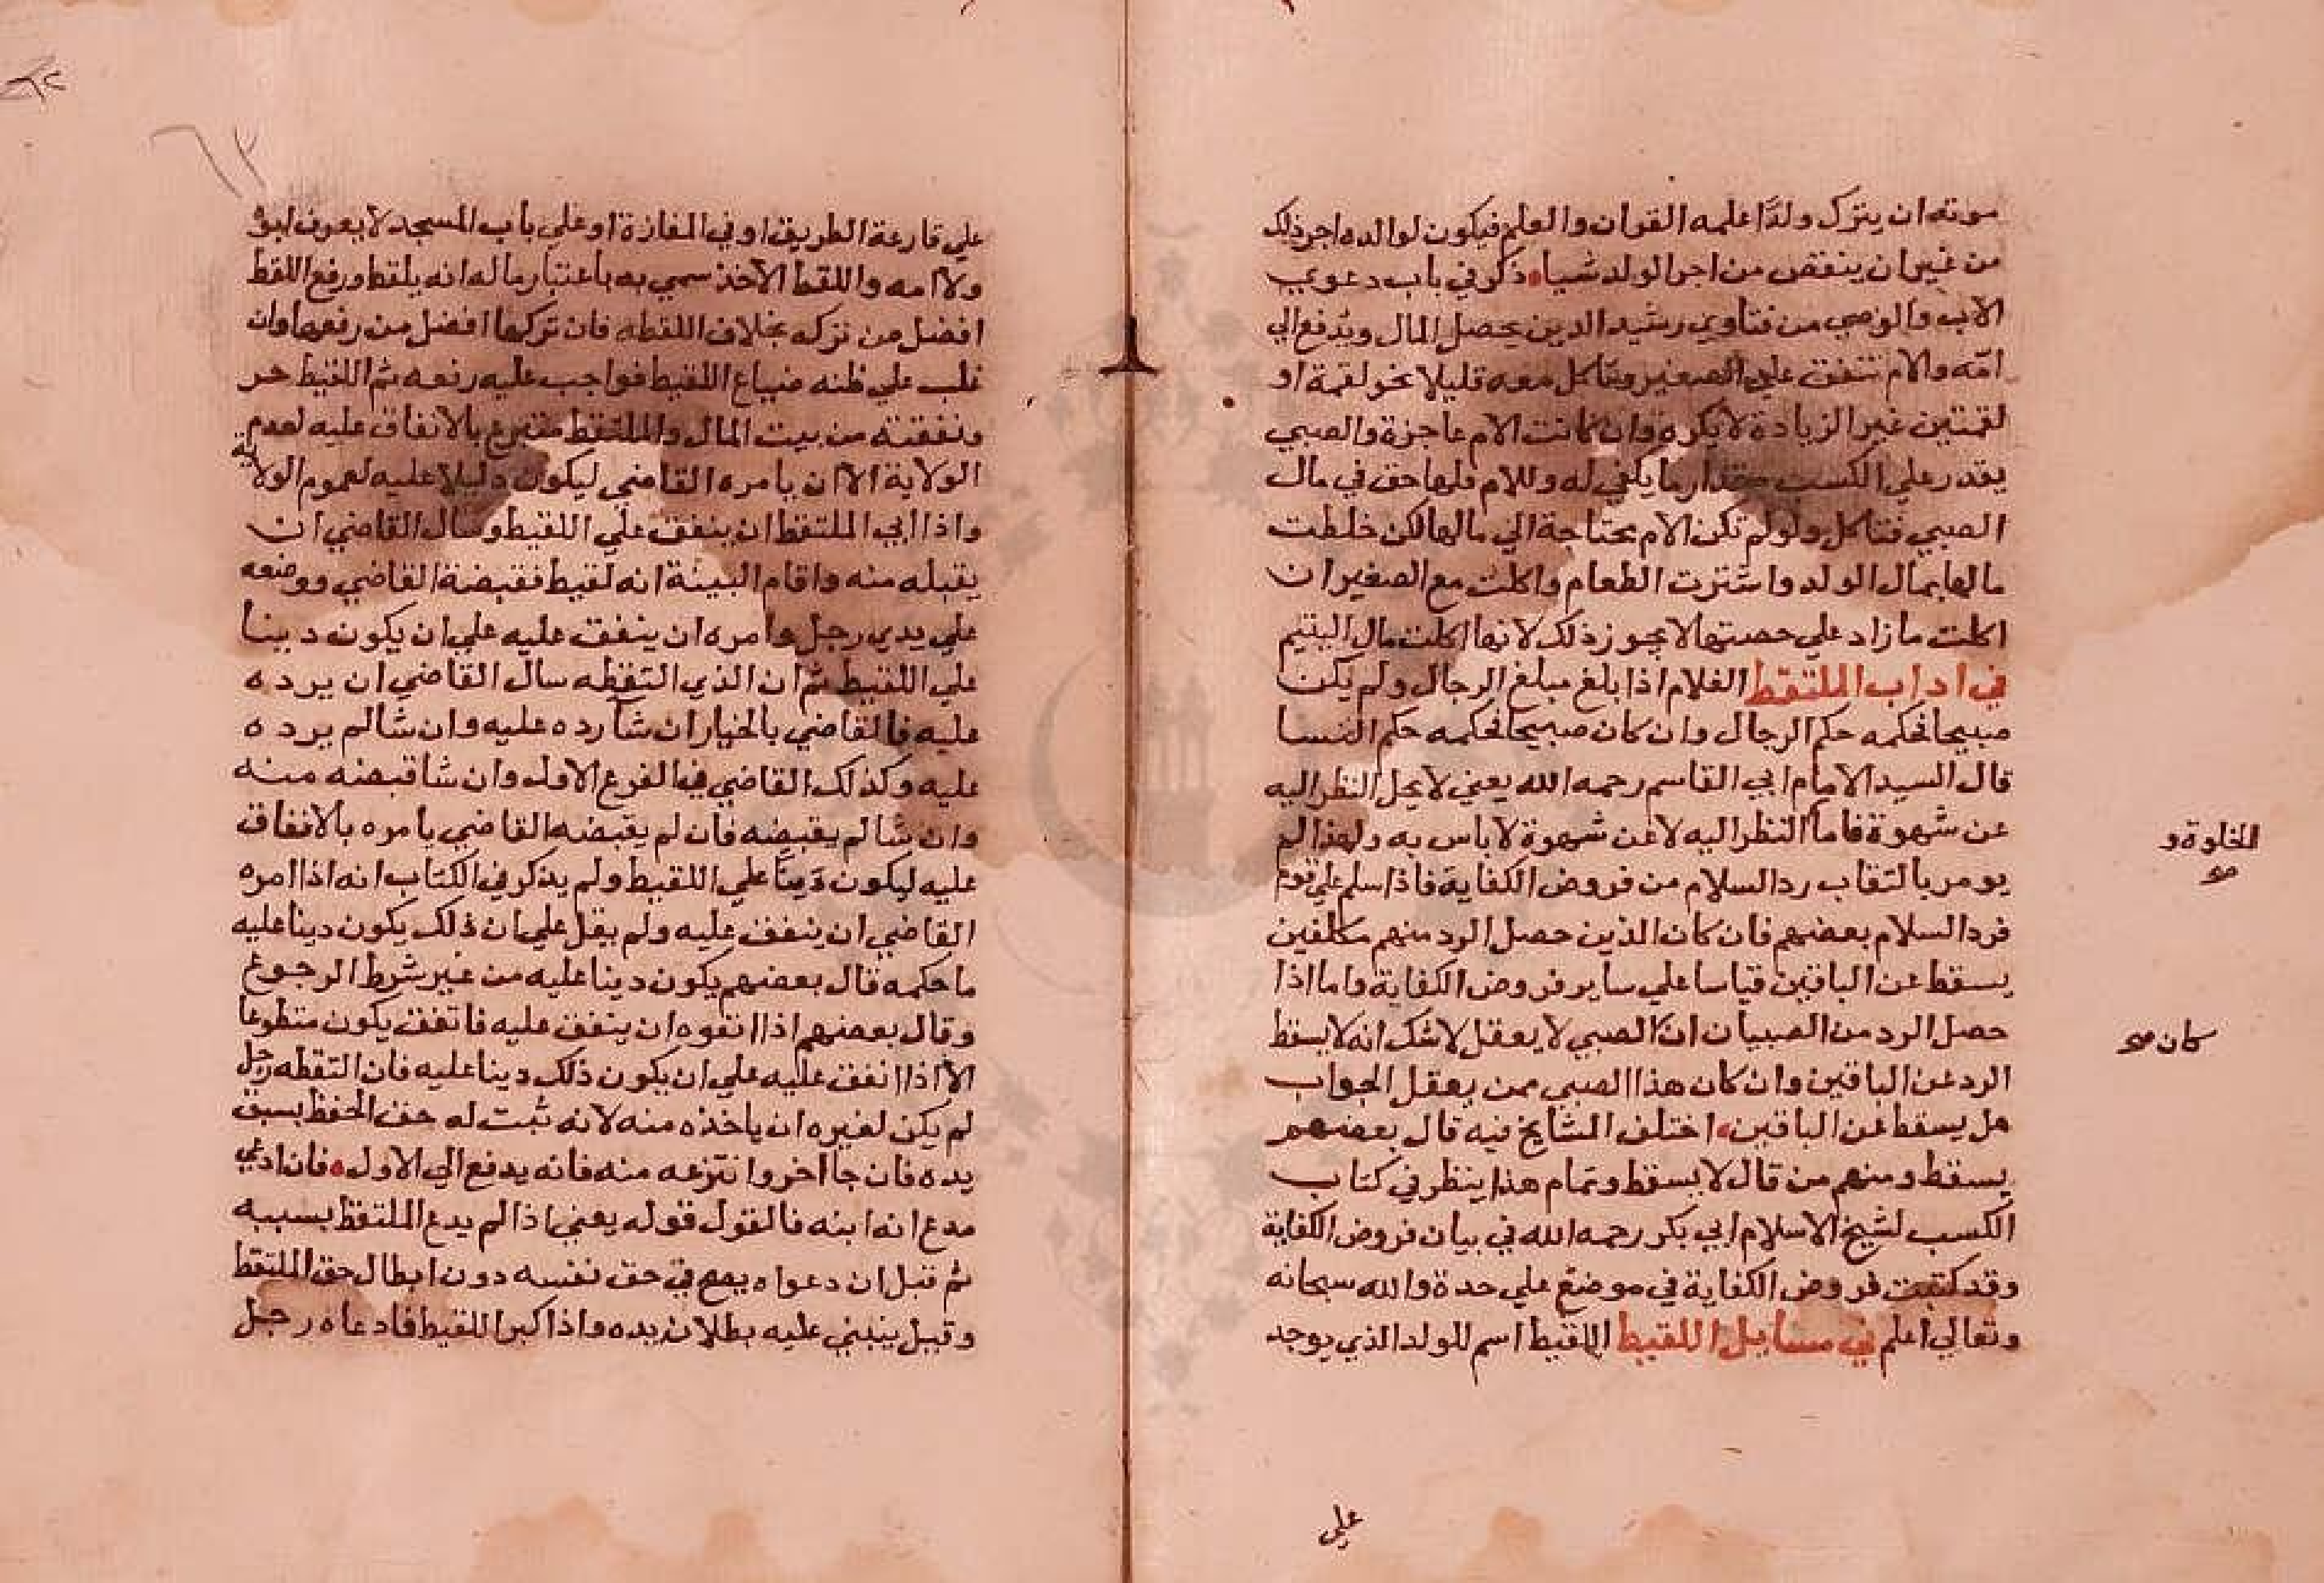 موته ان يترك ولدًا علمه القران والعلم فيكون لوالده اجر ذلك
من غير ان ينقص من اجر الولد شيا ذكر في باب دعوي
الاب والوصي من فتاوي رشيد الدين يحصل المال ويدفع الي
امّه والام تنفق علي الصغير وتاكل معه قليلا نحو لقمة او
لقمتين غير الزيادة لا يكره وان كانت الام عاجزة والصبي
يقدر علي الكسب مقدار ما يكفي له وللام فلها حق في مال
الصبي فتاكل ولو لم تكن الام محتاجة الي مالها لكن خلطت
مالها بمال الولد واشترت الطعام واكلت مع الصغير ان
اكلت ما زاد علي حصتها لا يجوز ذلك لانها اكلت مال اليتيم
في اداب الملتقط الغلام اذا بلغ مبلغ الرجال ولم يكن
صبيحا فحكمه حكم الرجال وان كان صبيحا فحكمه حكم النسا
قال السيد الامام ابي القاسم رحمه الله يعني لا يحل النظر اليه
عن شهوة فاما النظر اليه لا عن شهوة لا باس به ولهذا لم
الخلوة و
يومر بالنقاب رد السلام من فروض الكفاية فاذا سلم علي قوم
فرد السلام بعضهم فان كان الذين حصل الرد منهم مكلفين
يسقط عن الباقين قياسا علي ساير فروض الكفاية واما اذا
حصل الرد من الصبيان ان الصبي لا يعقل لا شك انه لا يسقط
كان صح
الرد عن الباقين وان كان هذا الصبي ممن يعقل الجواب
هل يسقط عن الباقين اختلف المشايخ فيه قال بعضهم
يسقط ومنهم من قال لا يسقط وتمام هذا ينظر في كتاب
الكسب لشيخ الاسلام ابي بكر رحمه الله في بيان فروض الكفاية
وقد كتبت فروض الكفاية في موضع علي حدة والله سبحانه
وتعالي اعلم في مسايل اللقيط اللقيط اسم للولد الذي يوجد
علي
٦٢
علي قارعة الطريق او في المفازة او علي باب المسجد لا يعرف ابوه
ولا امه واللقط الاخذ سمي به باعتبار ماله انه يلقط ورفع اللقط
افضل من تركه بخلاف اللقطه فان تركها افضل من رفعها وان
غلب علي ظنه ضياع اللقيط فواجب عليه رفعه ثم اللقيط حر
ونفقته من بيت المال والملتقط متبرع بالانفاق عليه لعدم
الولاية الا ان يامره القاضي ليكون دليلا عليه لعموم الولاية
واذا ابي الملتقط ان ينفق علي اللقيط وسال القاضي ان
يقبله منه واقام البينة انه لقيط فقبضة القاضي ووضعه
علي يدي رجل وامره ان ينفق عليه علي ان يكون دينا
علي اللقيط ثم ان الذي التقطه سال القاضي ان يرده
عليه فالقاضي بالخيار ان شا رده عليه وان شا لم يرده
عليه وكذلك القاضي في الفرع الاول وان شا قبضه منه
وان شا لم يقبضه فان لم يقبضه القاضي يامره بالانفاق
عليه ليكون دَينًا علي اللقيط ولم يذكر في الكتاب انه اذا امره
القاضي ان ينفق عليه ولم يقل علي ان ذلك يكون دينا عليه
ما حكمه قال بعضهم يكون دينا عليه من غير شرط الرجوع
وقال بعضهم اذا انفوه ان ينفق عليه فانفق يكون متطوعا
الا اذا انفق عليه علي ان يكون ذلك دينا عليه فان التقطه رجل
لم يكن لغيره ان ياخذه منه لانه ثبت له حق الحفظ بسبق
يده فان جا اخر وانتزعه منه فانه يدفع الي الاول فان ادعي
مدع انه ابنه فالقول قوله يعني اذا لم يدع الملتقط بسببه
ثم قيل ان دعواه يصح في حق نفسه دون ابطال حق الملتقط
وقيل ينبني عليه بطلان يده واذا كبر اللقيط فادعاه رجل